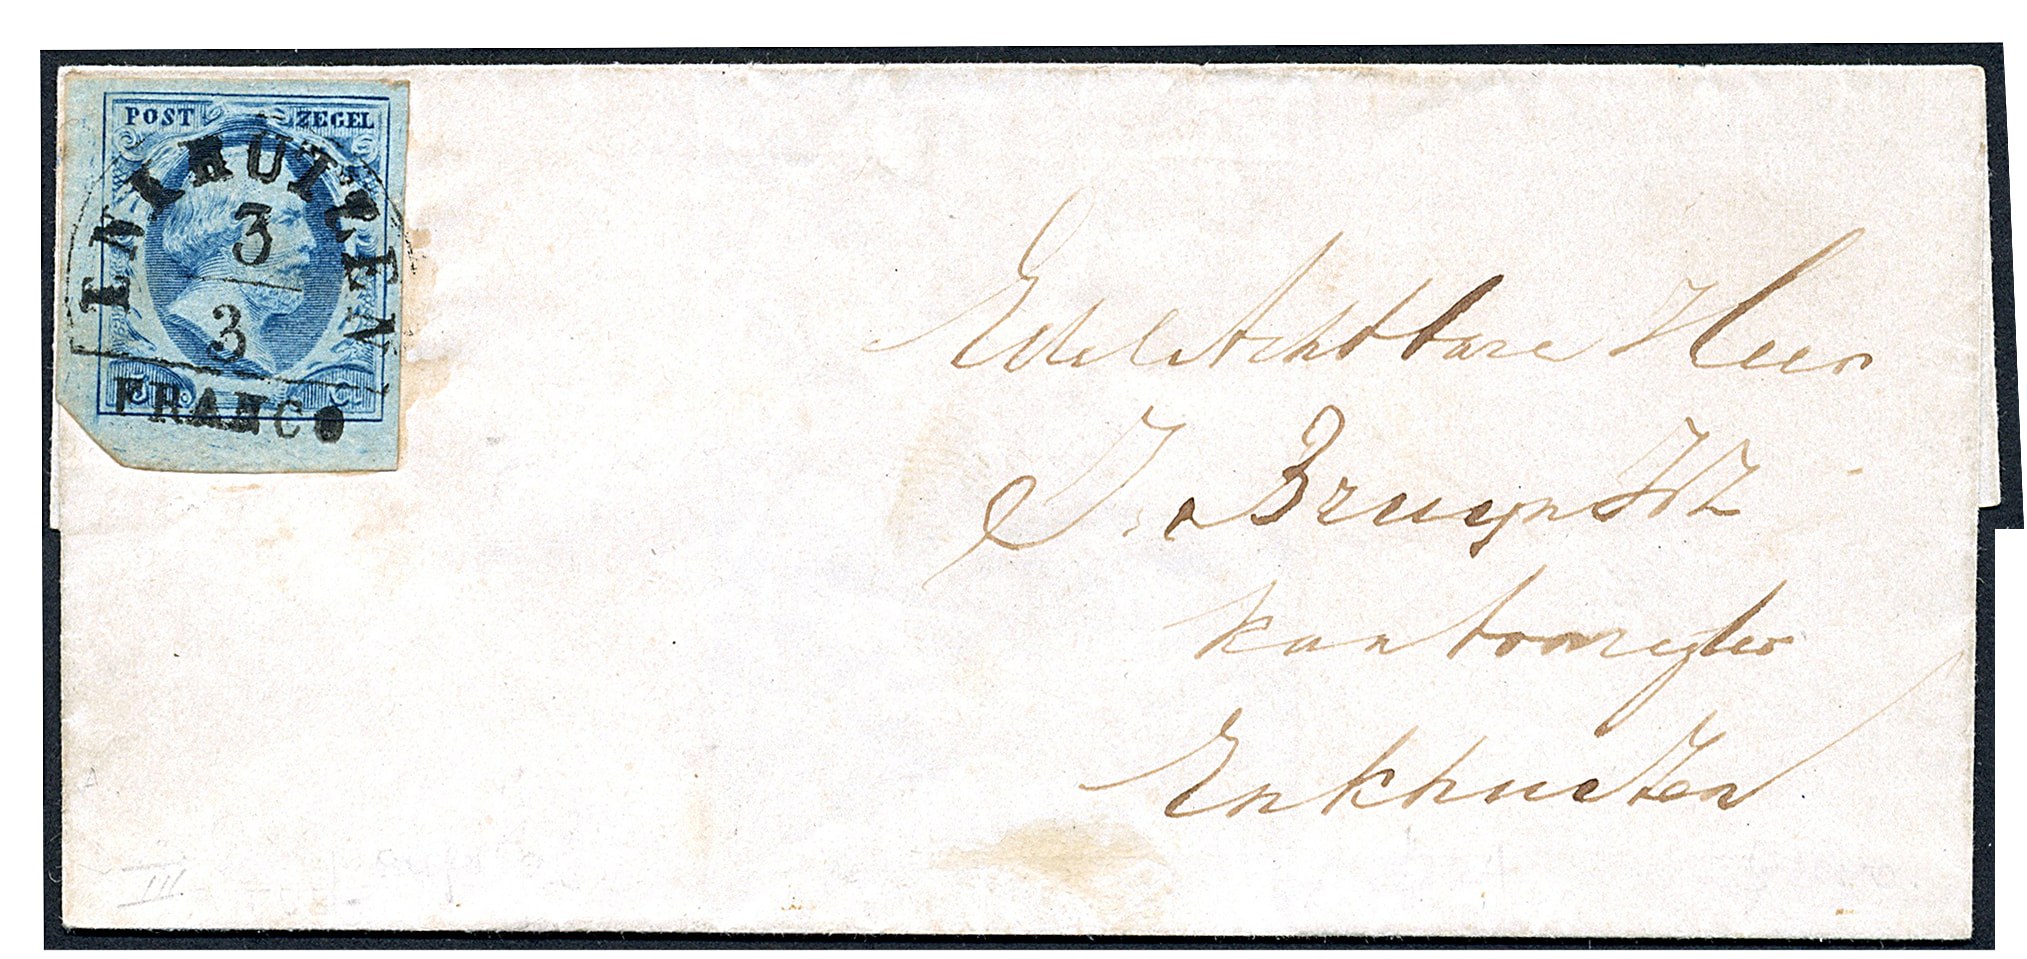 POST ZEGEL
ENKHUIZEN
3
3
FRANCO
5 C.
EdelAchtbare Heer
J. Bruyn HZ
kantonregter
Enkhuizen
III